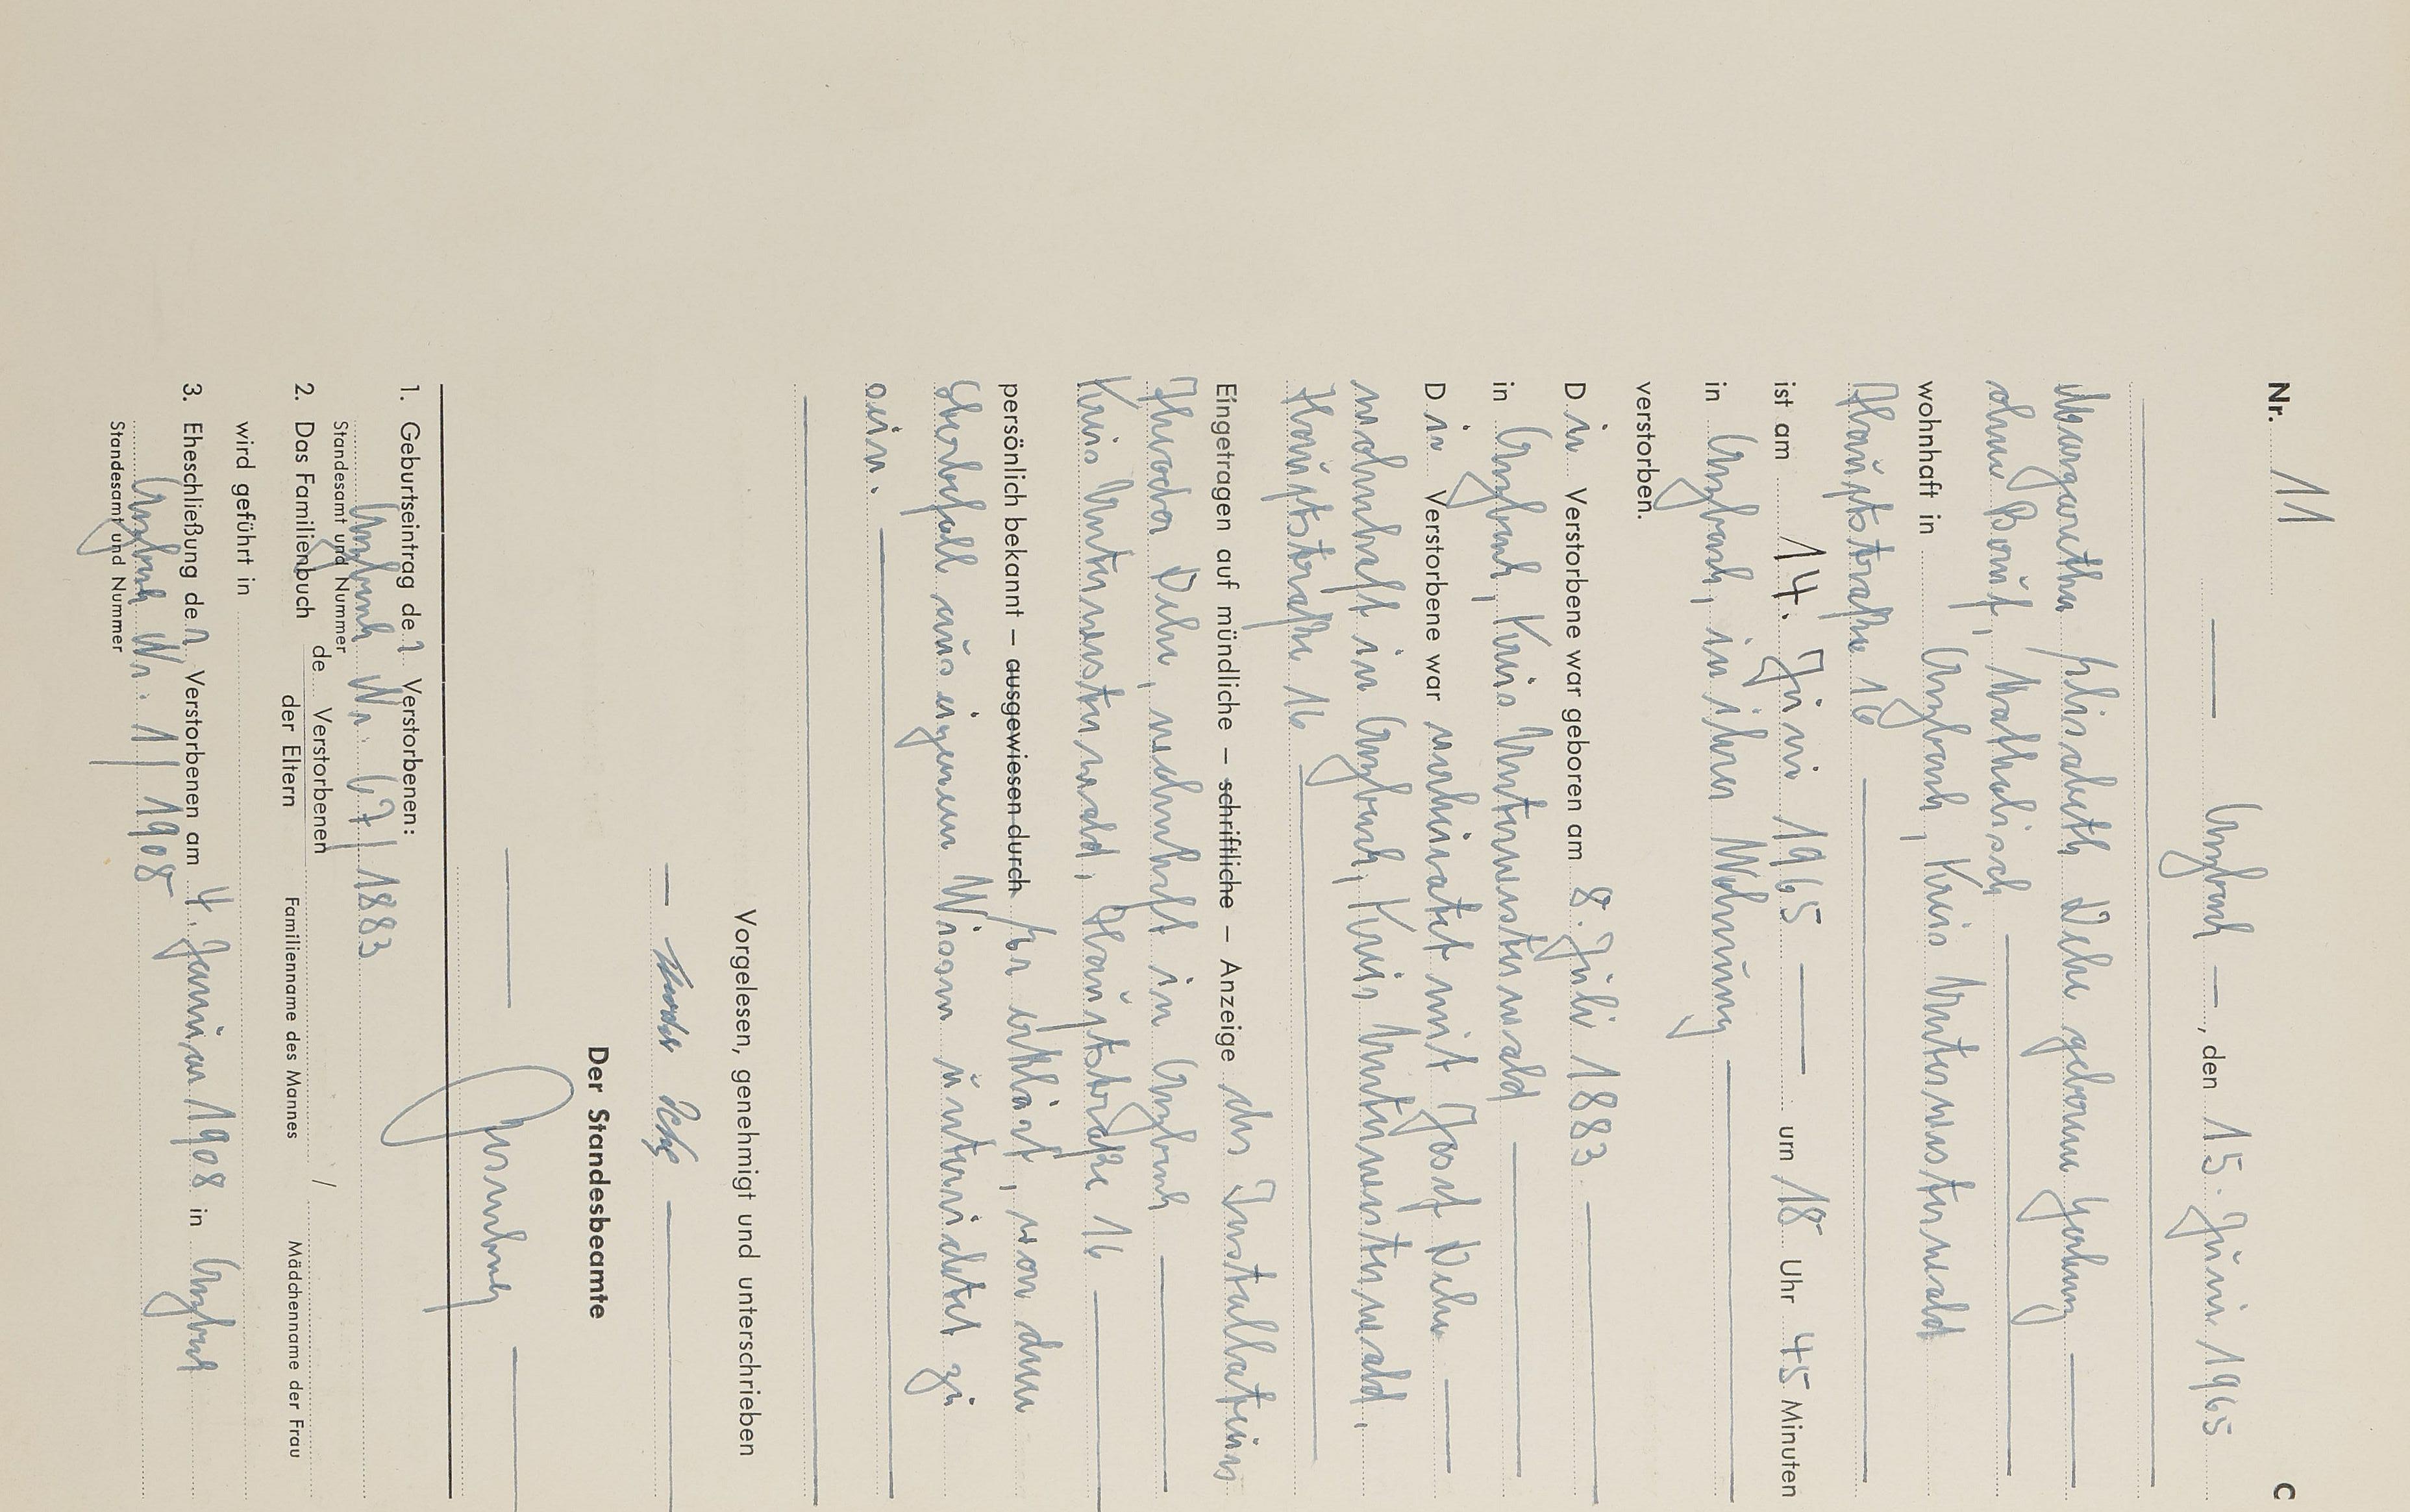 Nr. 11 C
— Arzbach —, den 15. Juni 1965
Margaretha Elisabeth Dehe geborene
ohne Beruf, katholisch
wohnhaft in Arzbach, Kreis Unterwesterwald
Hauptstraße 16
ist am 14. Juni 1965 — um 18 Uhr 45 Minuten
in Arzbach, in ihrer Wohnung
verstorben.
Die Verstorbene war geboren am 8. Juli 1883
in Arzbach, Kreis Unterwesterwald
Die Verstorbene war verheiratet mit Josef Dehe
wohnhaft in Arzbach, Kreis Unterwesterwald,
Hauptstraße 16
Eingetragen auf mündliche – schriftliche – Anzeige des Installateurs
Theodor Dehe, wohnhaft in Arzbach
Kreis Unterwesterwald, Hauptstraße 16
persönlich bekannt – ausgewiesen durch Er erklärt, von dem
Sterbefall aus eigenem Wissen unterrichtet zu
sein.
Vorgelesen, genehmigt und unterschrieben
— Theodor Dehe —
Der Standesbeamte
1. Geburtseintrag der Verstorbenen:
Arzbach Nr. 67/1883
Standesamt und Nummer
2. Das Familienbuch de Verstorbenen / der Eltern
Familienname des Mannes Mädchenname der Frau
wird geführt in
3. Eheschließung der Verstorbenen am 4. Januar 1908 in Arzbach
Arzbach Nr. 1/1908
Standesamt und Nummer